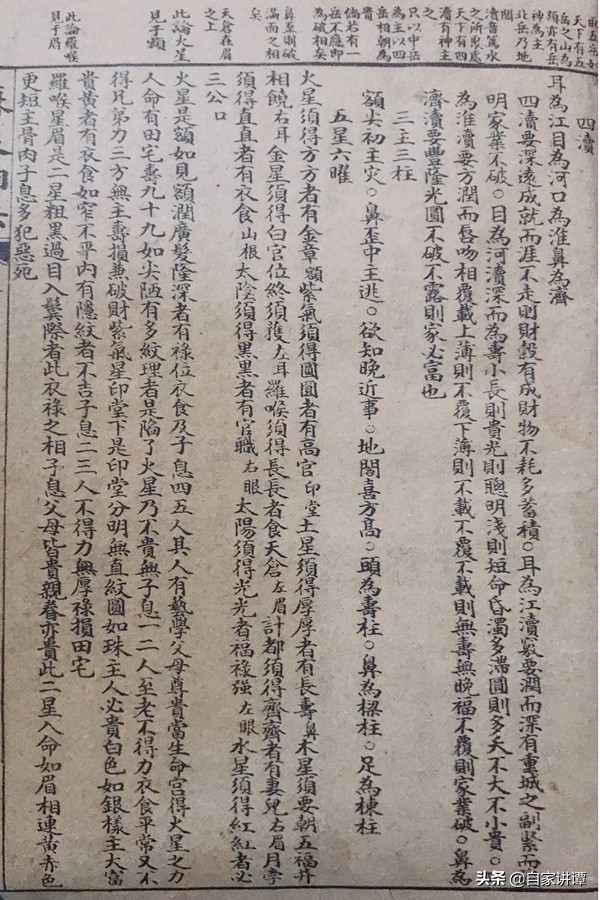 四瀆
耳為江目為河口為淮鼻為濟
四瀆要深遠成就而涯不走則財穀有成財物不耗多蓄積○耳為江瀆竅要濶而深有重城之副緊而
明家業不破○目為河瀆深而為壽小長則貴光則聰明淺則短命昏濁多滯圓則多夭不大不小貴○口
為淮瀆要方濶而唇吻相覆載上薄則不覆下薄則不載不覆不載則無壽無晚福不覆則家業破○鼻為
濟瀆要豐隆光圓不破不露則家必富也
三主三柱
額尖初主災○鼻歪中主逃○欲知晚近事○地閣喜方高○頭為壽柱○鼻為樑柱○足為棟柱
五星六曜
火星須得方方者有金章額紫氣須得圓圓者有高官印堂土星須得厚厚者有長壽鼻木星須要朝五福并
相饒右耳金星須得白官位終須獲左耳羅喉須得長長者食天倉左眉計都須得齊齊者有妻兒右眉月孛
須得直直者有衣食山根太陰須得黑黑者有官職右眼太陽須得光光者福祿强左眼水星須得紅紅者必
三公口
火星是額如見額濶廣髮隆深者有祿位衣食及子息四五人其人有藝學父母尊貴當生命宮得火星之力
人命有田宅壽九十九如尖陋有多紋理者是陷了火星乃不貴無子息一二人至老不得力衣食平常又不
得兄弟力三方無主壽損兼破財紫氣星印堂下是印堂分明無直紋圓如珠主人必貴白色如銀樣主大富
貴黃者有衣食如窄不平內有隱紋者不吉子息二三人不得力無厚祿損田宅
羅喉星眉是二星粗黑過目入鬢際者此衣祿之相子息父母皆貴親眷亦貴此二星入命如眉相連黃赤色
更短主骨肉子息多犯惡死
天下有五
岳之山為
須亦有岳
神為主
北岳乃地
閣
瀆者萬水
之所聚處
天下有四
瀆有神主
之
只以中岳
為主以四
岳相朝為
貴
倘若有一
岳不應即
為破相矣
鼻至頭破
滿面之相
矣
天倉在眉
之上
此論火星
見于額
此論羅喉
見于眉
头条 @自家讲谭